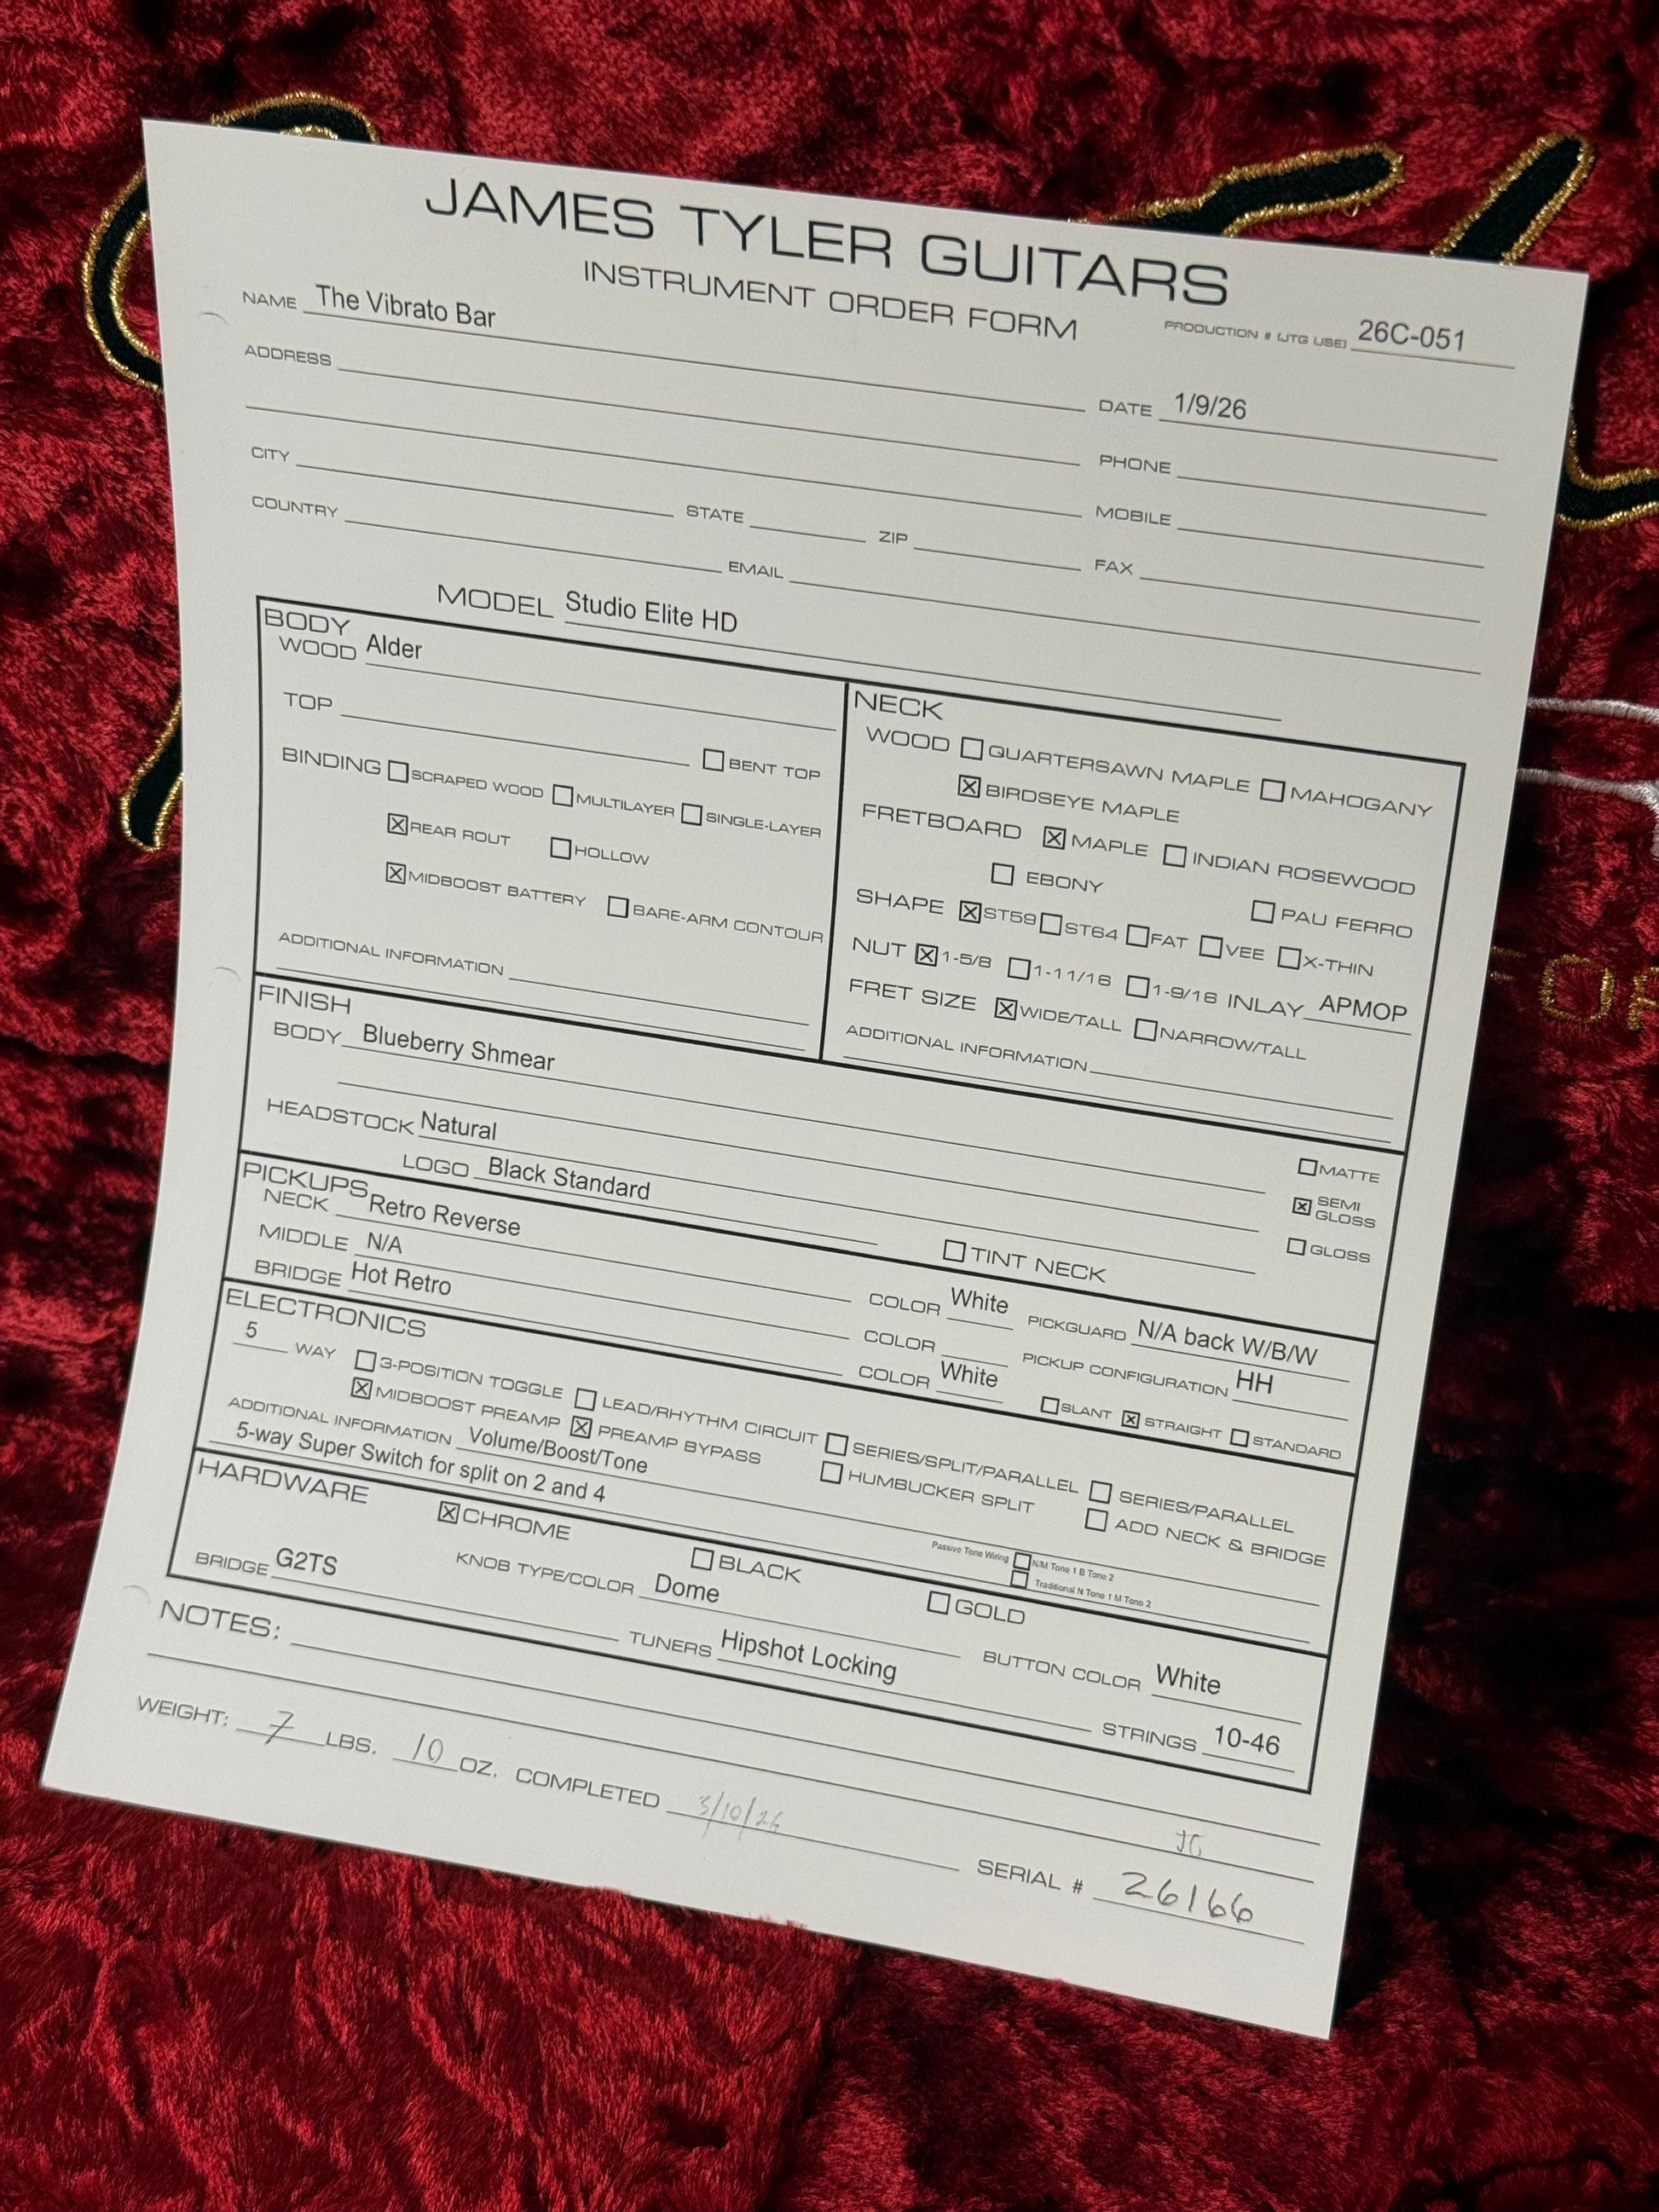 JAMES TYLER GUITARS
INSTRUMENT ORDER FORM
NAME The Vibrato Bar
PRODUCTION # (JTG USE) 26C-051
ADDRESS
DATE 1/9/26
PHONE
CITY STATE ZIP MOBILE
COUNTRY EMAIL FAX
MODEL Studio Elite HD
BODY
WOOD Alder
TOP
☐ BENT TOP
BINDING ☐ SCRAPED WOOD ☐ MULTILAYER ☐ SINGLE-LAYER
☒ REAR ROUT ☐ HOLLOW
☒ MIDBOOST BATTERY ☐ BARE-ARM CONTOUR
ADDITIONAL INFORMATION
NECK
WOOD ☐ QUARTERSAWN MAPLE ☐ MAHOGANY
☒ BIRDSEYE MAPLE
FRETBOARD ☒ MAPLE ☐ INDIAN ROSEWOOD
☐ EBONY ☐ PAU FERRO
SHAPE ☒ ST59 ☐ ST64 ☐ FAT ☐ VEE ☐ X-THIN
NUT ☒ 1-5/8 ☐ 1-11/16 ☐ 1-9/16 INLAY APMOP
FRET SIZE ☒ WIDE/TALL ☐ NARROW/TALL
ADDITIONAL INFORMATION
FINISH
BODY Blueberry Shmear
HEADSTOCK Natural
LOGO Black Standard
☐ TINT NECK
☐ MATTE
☒ SEMI GLOSS
☐ GLOSS
PICKUPS
NECK Retro Reverse COLOR White PICKGUARD N/A back W/B/W
MIDDLE N/A COLOR PICKUP CONFIGURATION HH
BRIDGE Hot Retro COLOR White ☐ SLANT ☒ STRAIGHT ☐ STANDARD
ELECTRONICS
5 WAY ☐ 3-POSITION TOGGLE ☐ LEAD/RHYTHM CIRCUIT ☐ SERIES/SPLIT/PARALLEL ☐ SERIES/PARALLEL
☒ MIDBOOST PREAMP ☒ PREAMP BYPASS ☐ HUMBUCKER SPLIT ☐ ADD NECK & BRIDGE
ADDITIONAL INFORMATION Volume/Boost/Tone
5-way Super Switch for split on 2 and 4
Passive Tone Wiring ☐ N/M Tone 1 B Tone 2
☐ Traditional N Tone 1 M Tone 2
HARDWARE
☒ CHROME ☐ BLACK ☐ GOLD
BRIDGE G2TS KNOB TYPE/COLOR Dome BUTTON COLOR White
TUNERS Hipshot Locking STRINGS 10-46
NOTES:
WEIGHT: 7 LBS. 10 OZ. COMPLETED 3/10/26
SERIAL # 26166